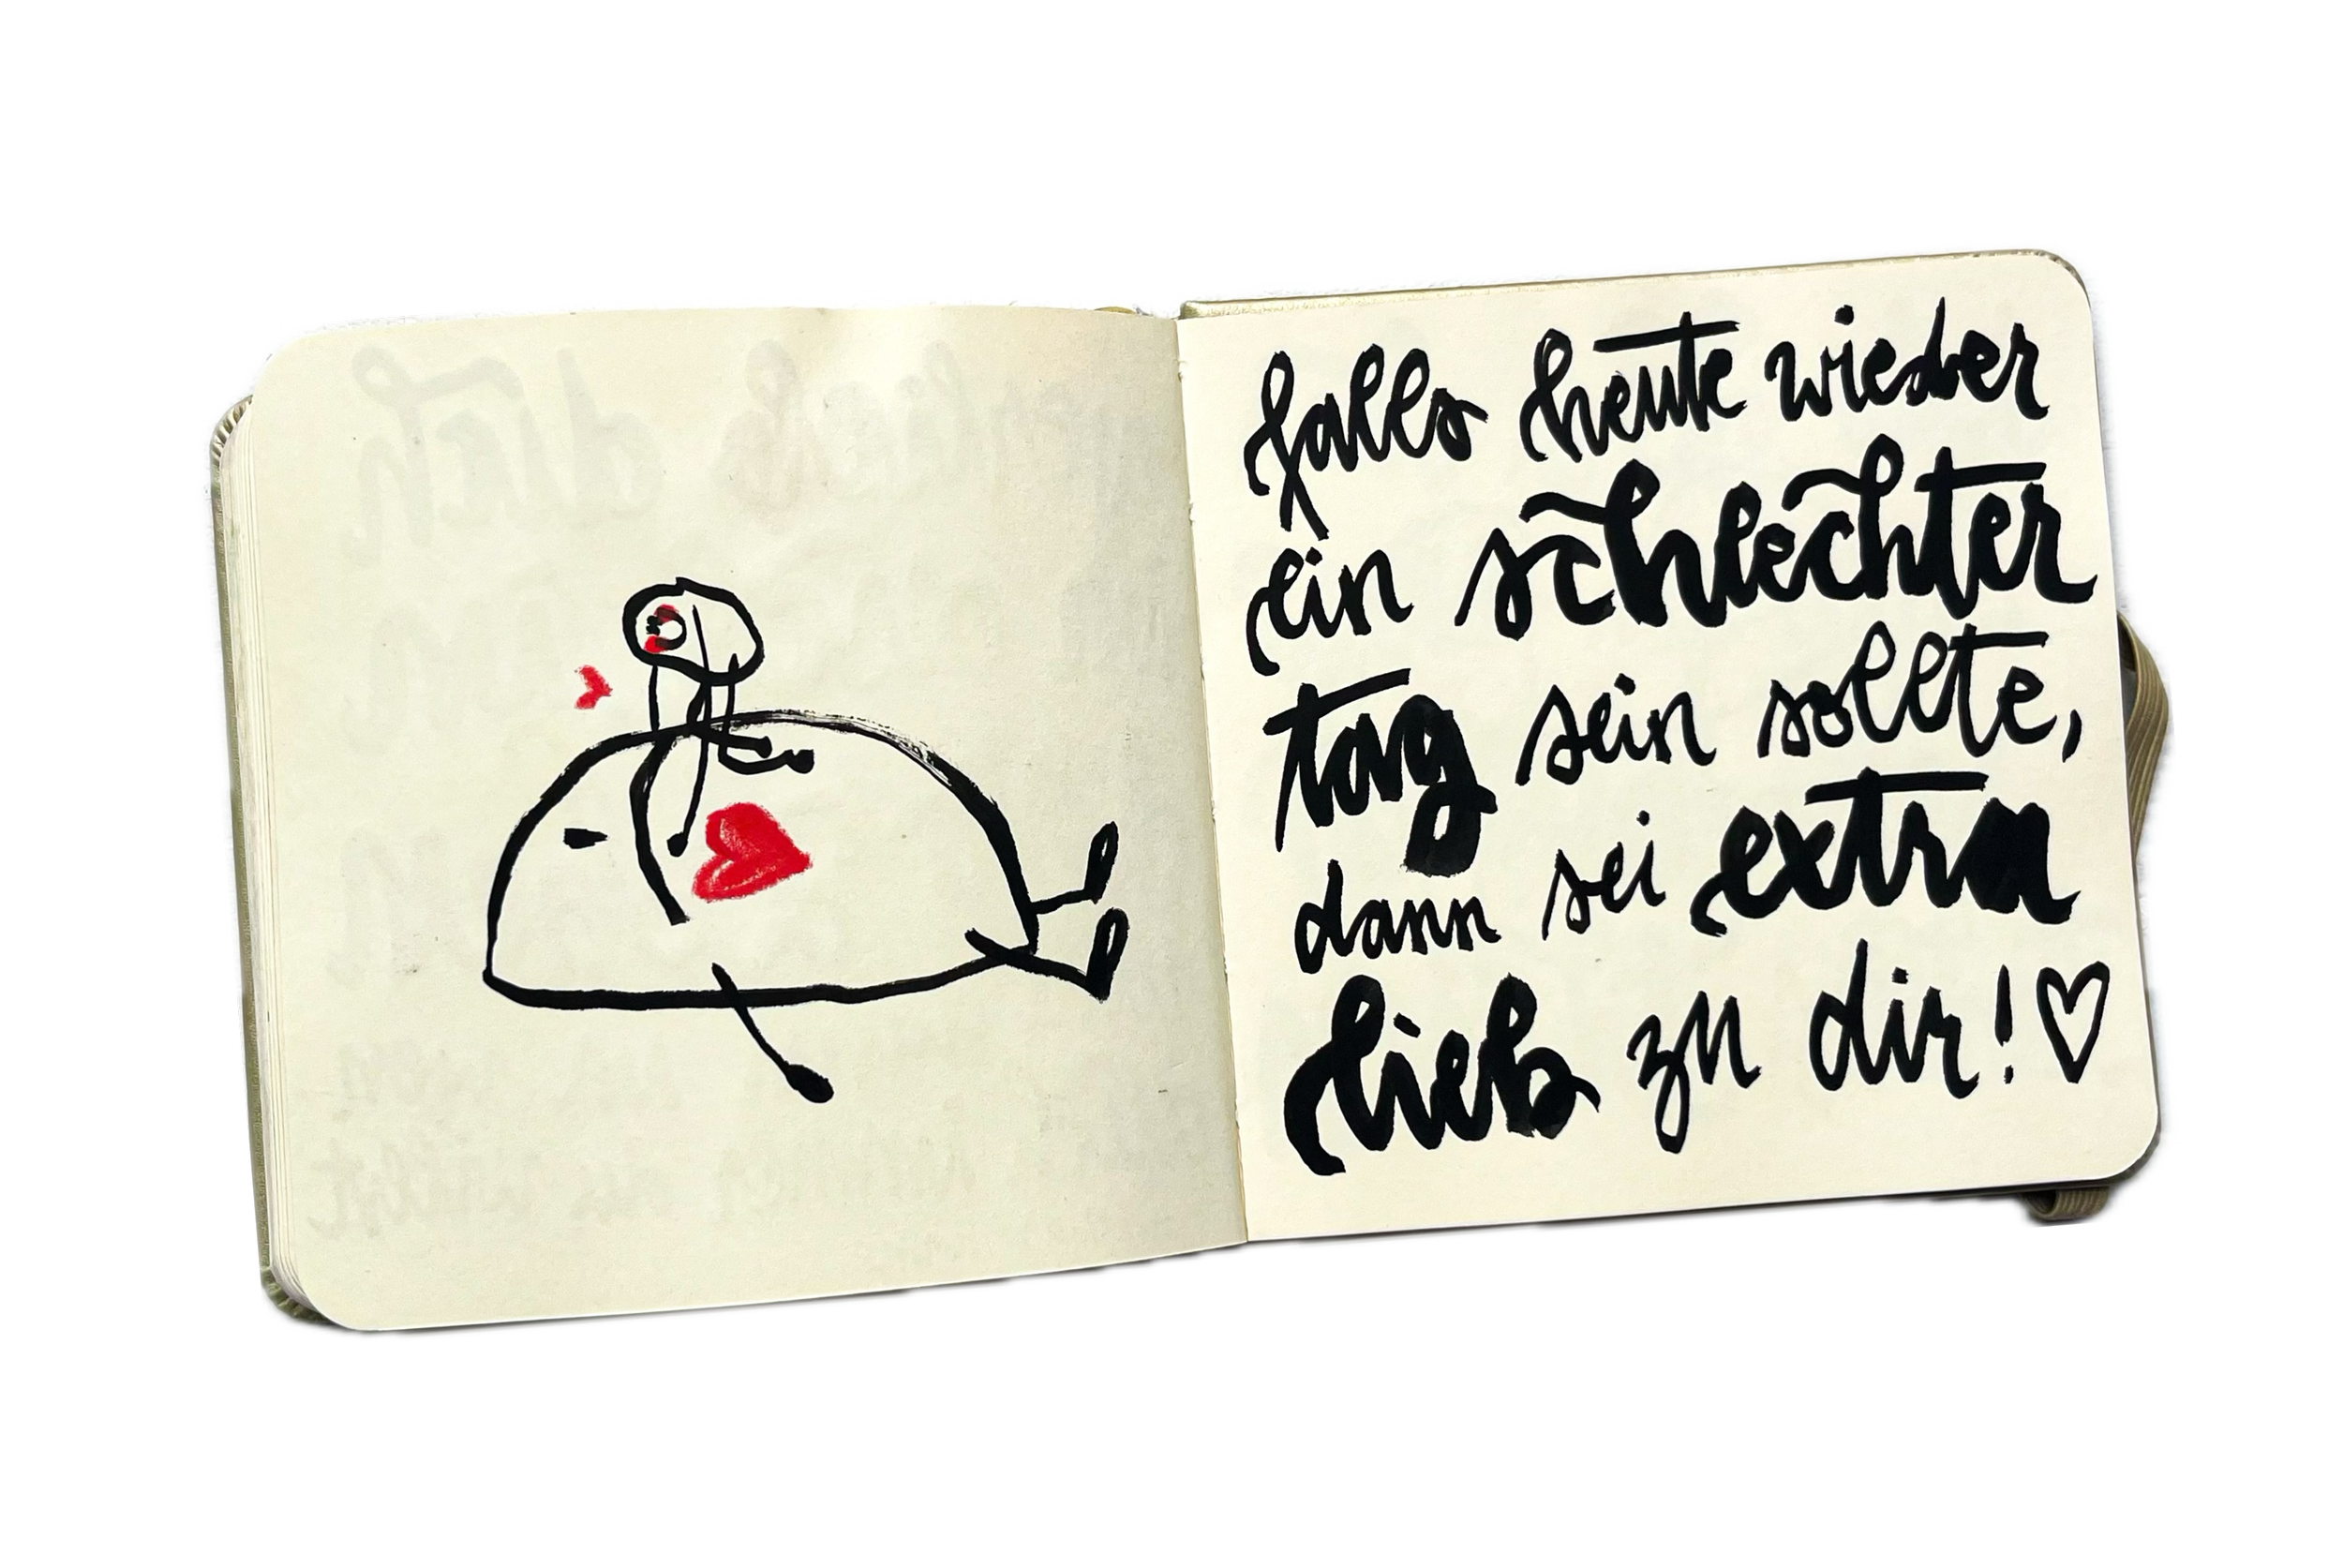 falls heute wieder
ein schlechter
tag sein sollte,
dann sei extra
lieb zu dir! ♡